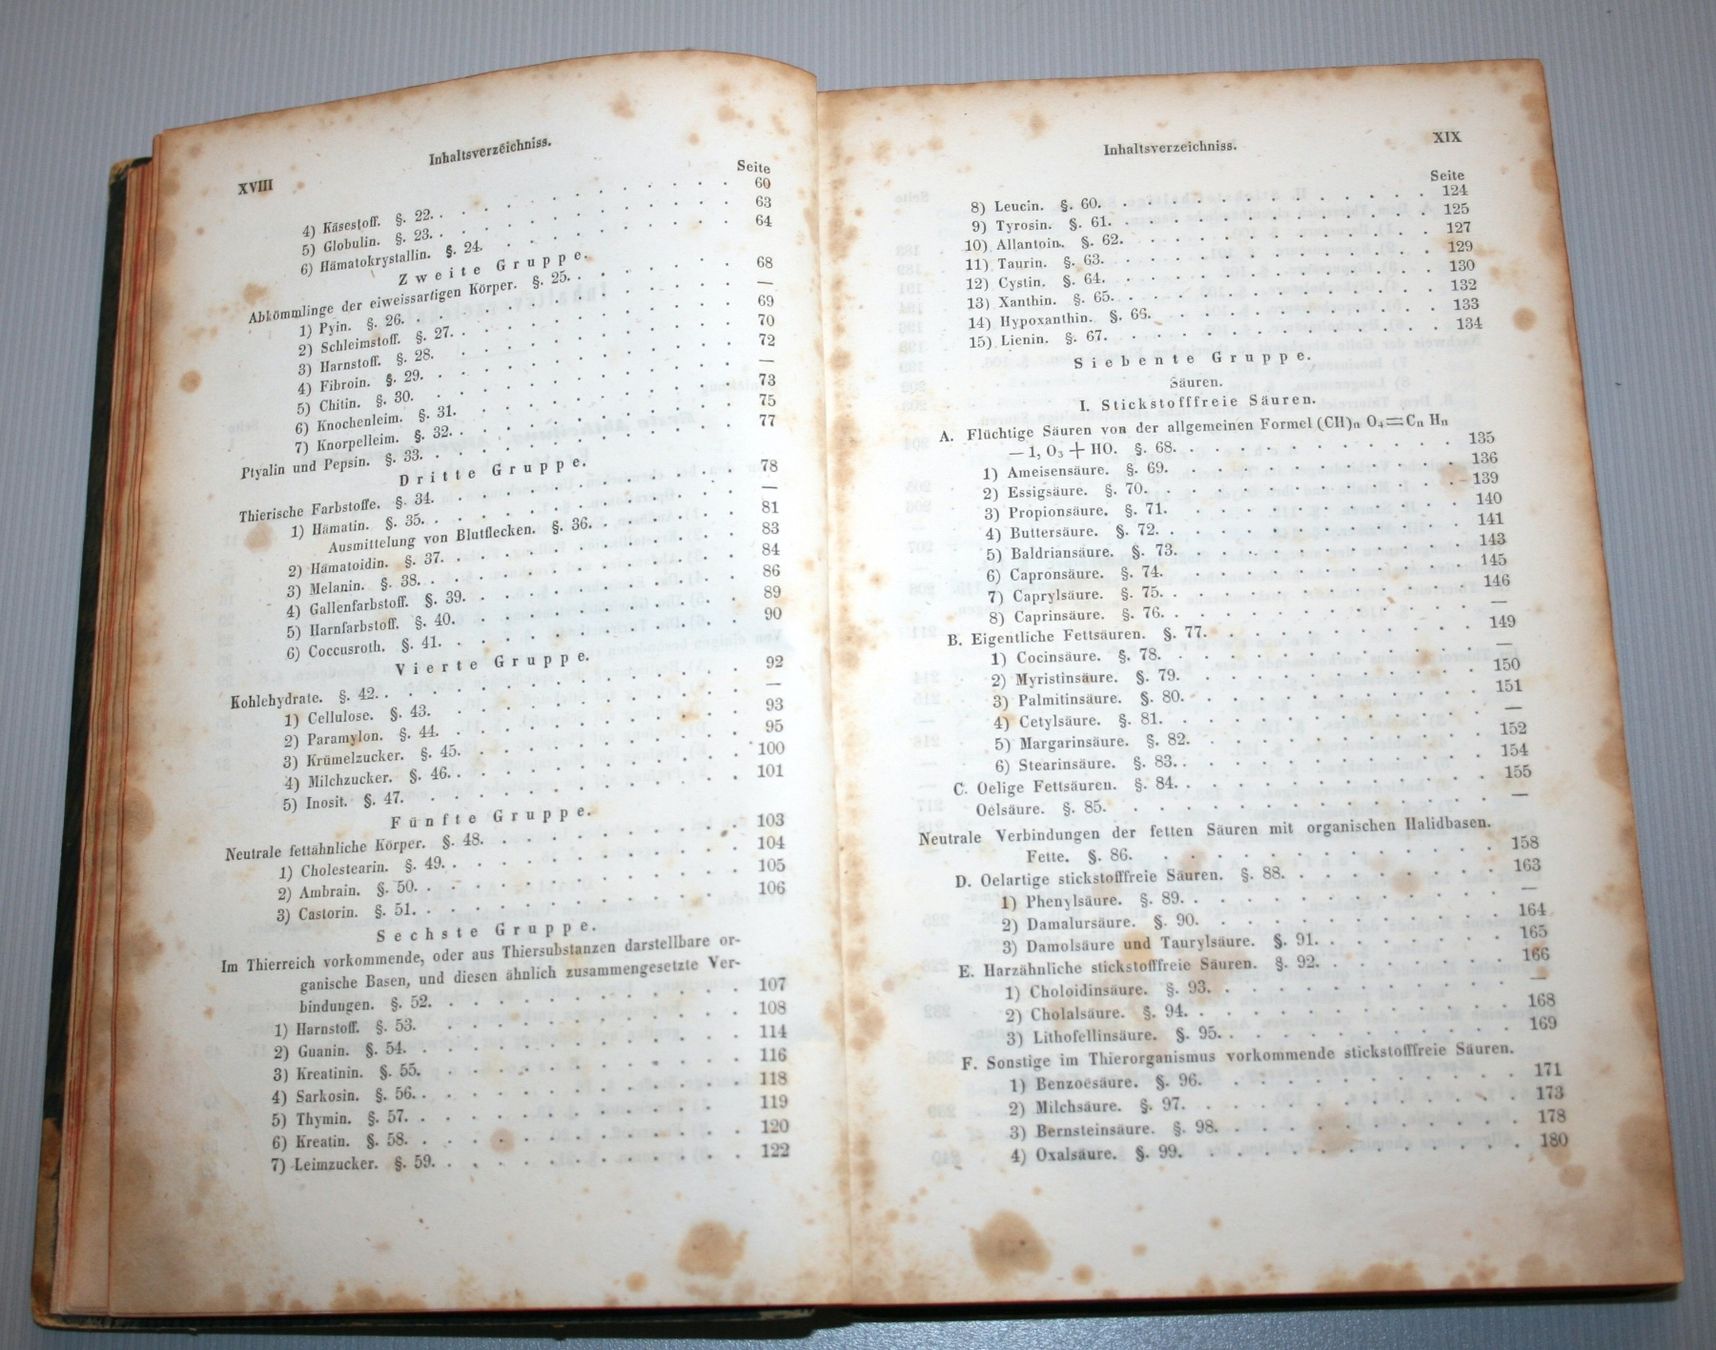 XVIII Inhaltsverzeichniss.
Seite
4) Käsestoff. §. 22. . . . . . . . . . . 60
5) Globulin. §. 23. . . . . . . . . . . 63
6) Hämatokrystallin. §. 24. . . . . . . . . 64
Zweite Gruppe.
Abkömmlinge der eiweissartigen Körper. §. 25. . . . . . . 68
1) Pyin. §. 26. . . . . . . . . . . . —
2) Schleimstoff. §. 27. . . . . . . . . . 69
3) Harnstoff. §. 28. . . . . . . . . . . 70
4) Fibroin. §. 29. . . . . . . . . . . 72
5) Chitin. §. 30. . . . . . . . . . . —
6) Knochenleim. §. 31. . . . . . . . . . 73
7) Knorpelleim. §. 32. . . . . . . . . . 75
Ptyalin und Pepsin. §. 33. . . . . . . . . . . 77
Dritte Gruppe.
Thierische Farbstoffe. §. 34. . . . . . . . . . . 78
1) Hämatin. §. 35. . . . . . . . . . . —
Ausmittelung von Blutflecken. §. 36. . . . . . 81
2) Hämatoidin. §. 37. . . . . . . . . . 83
3) Melanin. §. 38. . . . . . . . . . . 84
4) Gallenfarbstoff. §. 39. . . . . . . . . . 86
5) Harnfarbstoff. §. 40. . . . . . . . . . 89
6) Coccusroth. §. 41. . . . . . . . . . . 90
Vierte Gruppe.
Kohlehydrate. §. 42. . . . . . . . . . . . . 92
1) Cellulose. §. 43. . . . . . . . . . . —
2) Paramylon. §. 44. . . . . . . . . . . 93
3) Krümelzucker. §. 45. . . . . . . . . . 95
4) Milchzucker. §. 46. . . . . . . . . . 100
5) Inosit. §. 47. . . . . . . . . . . . 101
Fünfte Gruppe.
Neutrale fettähnliche Körper. §. 48. . . . . . . . . 103
1) Cholestearin. §. 49. . . . . . . . . . 104
2) Ambrain. §. 50. . . . . . . . . . . 105
3) Castorin. §. 51. . . . . . . . . . . 106
Sechste Gruppe.
Im Thierreich vorkommende, oder aus Thiersubstanzen darstellbare or-
ganische Basen, und diesen ähnlich zusammengesetzte Ver-
bindungen. §. 52. . . . . . . . . . . 107
1) Harnstoff. §. 53. . . . . . . . . . . 108
2) Guanin. §. 54. . . . . . . . . . . 114
3) Kreatinin. §. 55. . . . . . . . . . . 116
4) Sarkosin. §. 56. . . . . . . . . . . 118
5) Thymin. §. 57. . . . . . . . . . . 119
6) Kreatin. §. 58. . . . . . . . . . . 120
7) Leimzucker. §. 59. . . . . . . . . . . 122
Inhaltsverzeichniss. XIX
Seite
8) Leucin. §. 60. . . . . . . . . . . 124
9) Tyrosin. §. 61. . . . . . . . . . . 125
10) Allantoin. §. 62. . . . . . . . . . . 127
11) Taurin. §. 63. . . . . . . . . . . 129
12) Cystin. §. 64. . . . . . . . . . . 130
13) Xanthin. §. 65. . . . . . . . . . . 132
14) Hypoxanthin. §. 66. . . . . . . . . . 133
15) Lienin. §. 67. . . . . . . . . . . 134
Siebente Gruppe.
Säuren.
I. Stickstofffreie Säuren.
A. Flüchtige Säuren von der allgemeinen Formel (CH)n O4=Cn Hn
— 1, O3 + HO. §. 68. . . . . . . . . . 135
1) Ameisensäure. §. 69. . . . . . . . . . 136
2) Essigsäure. §. 70. . . . . . . . . . . 139
3) Propionsäure. §. 71. . . . . . . . . . 140
4) Buttersäure. §. 72. . . . . . . . . . 141
5) Baldriansäure. §. 73. . . . . . . . . . 143
6) Capronsäure. §. 74. . . . . . . . . . 145
7) Caprylsäure. §. 75. . . . . . . . . . 146
8) Caprinsäure. §. 76. . . . . . . . . . —
B. Eigentliche Fettsäuren. §. 77. . . . . . . . . . 149
1) Cocinsäure. §. 78. . . . . . . . . . . —
2) Myristinsäure. §. 79. . . . . . . . . . 150
3) Palmitinsäure. §. 80. . . . . . . . . . 151
4) Cetylsäure. §. 81. . . . . . . . . . . —
5) Margarinsäure. §. 82. . . . . . . . . . 152
6) Stearinsäure. §. 83. . . . . . . . . . 154
C. Oelige Fettsäuren. §. 84. . . . . . . . . . . 155
Oelsäure. §. 85. . . . . . . . . . . . —
Neutrale Verbindungen der fetten Säuren mit organischen Halidbasen.
Fette. §. 86. . . . . . . . . . . . 158
D. Oelartige stickstofffreie Säuren. §. 88. . . . . . . . 163
1) Phenylsäure. §. 89. . . . . . . . . . . —
2) Damalursäure. §. 90. . . . . . . . . . 164
3) Damolsäure und Taurylsäure. §. 91. . . . . . . 165
E. Harzähnliche stickstofffreie Säuren. §. 92. . . . . . . 166
1) Choloidinsäure. §. 93. . . . . . . . . . —
2) Cholalsäure. §. 94. . . . . . . . . . . 168
3) Lithofellinsäure. §. 95. . . . . . . . . . 169
F. Sonstige im Thierorganismus vorkommende stickstofffreie Säuren.
1) Benzoesäure. §. 96. . . . . . . . . . 171
2) Milchsäure. §. 97. . . . . . . . . . . 173
3) Bernsteinsäure. §. 98. . . . . . . . . . 178
4) Oxalsäure. §. 99. . . . . . . . . . . 180